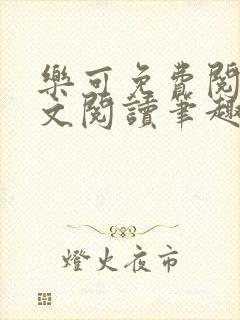 樂可免費閱
文閱讀筆趣
燈火夜市